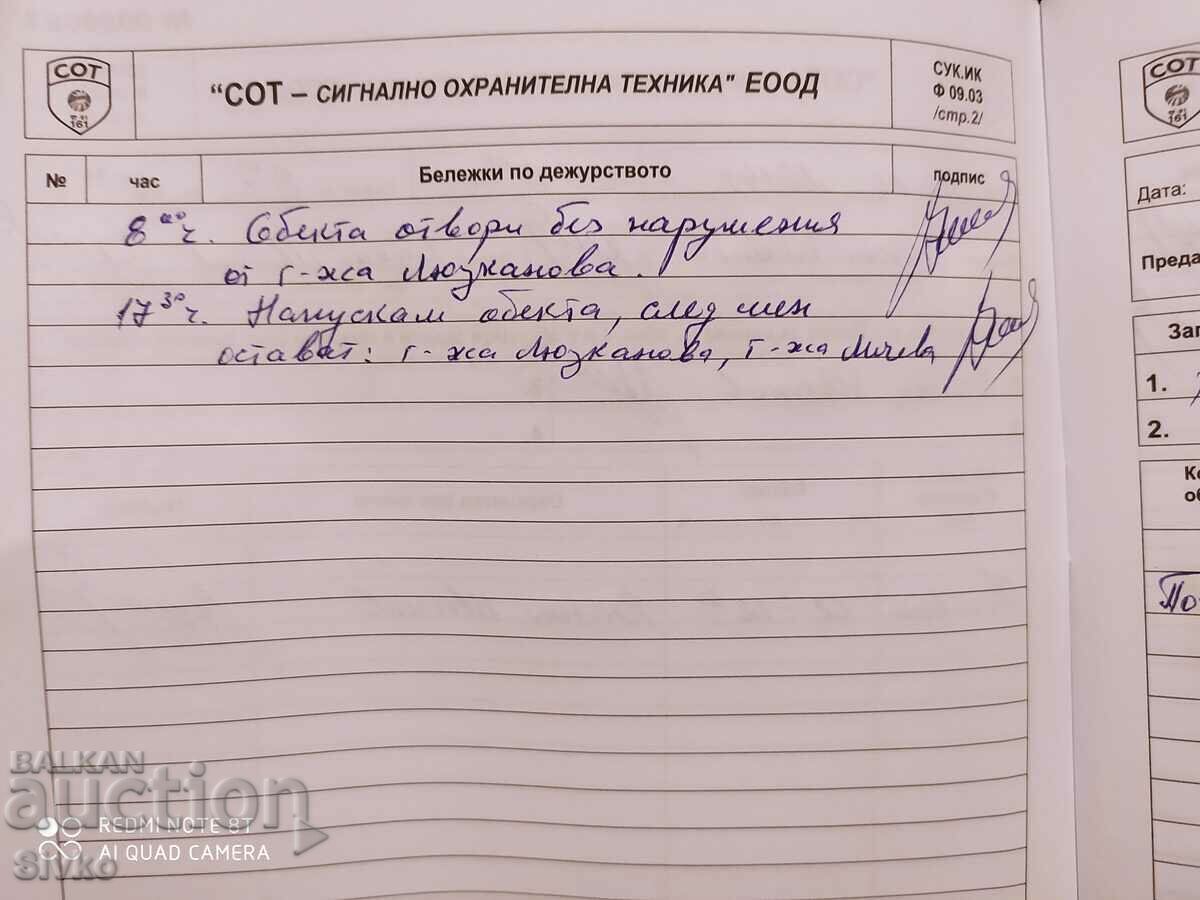 СОТ
161
"СОТ – СИГНАЛНО ОХРАНИТЕЛНА ТЕХНИКА" ЕООД
СУК.ИК
Ф 09.03
/стр.2/
№ час Бележки по дежурството подпис
8 00 ч. Обекта отвори без нарушения
от г-жа Люзканова.
17 30 ч. Напускам обекта, след мен
остават: г-жа Люзканова, г-жа Мичева
СОТ
161
Дата:
Преда
Заг
1.
2.
Ко
об
По
BALKAN
auction
REDMI NOTE 8T
AI QUAD CAMERA
Sivko